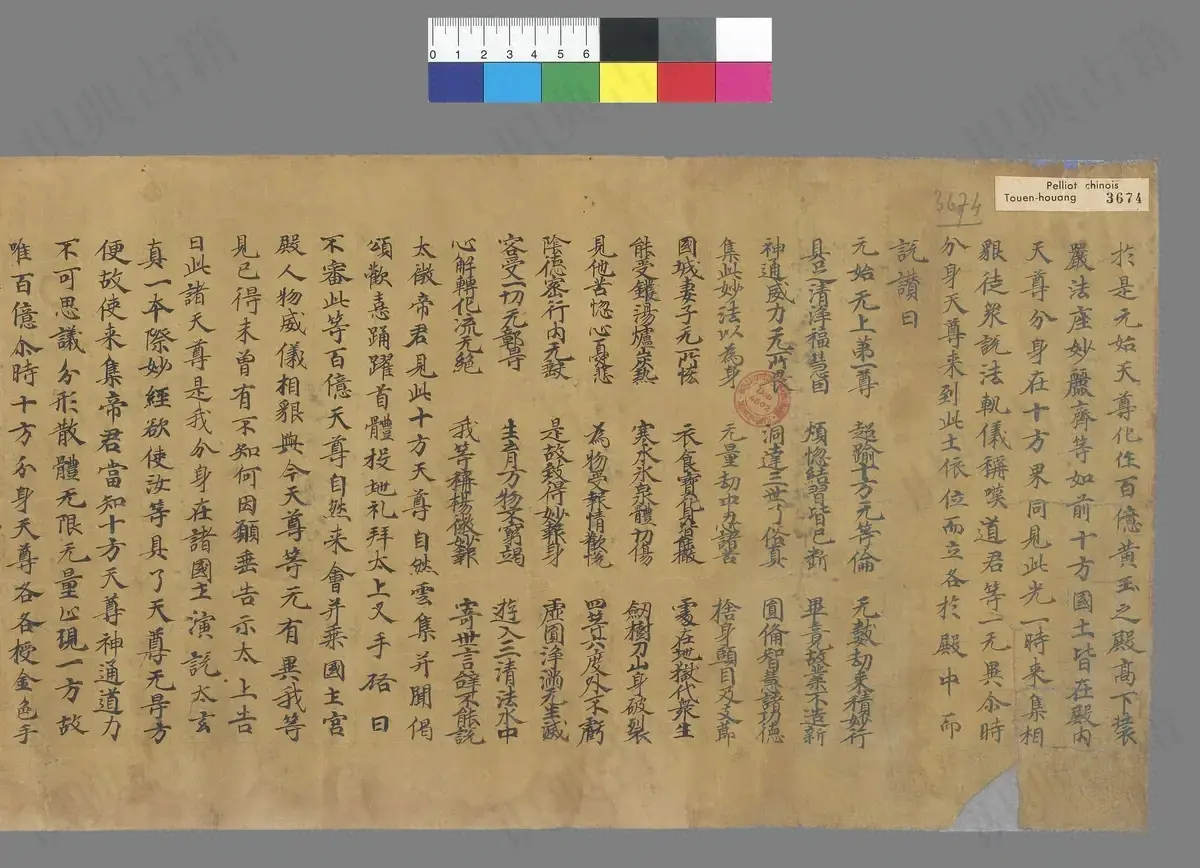 Pelliot chinois
Touen-houang 3674
3674
0 1 2 3 4 5 6
於是元始天尊化作百億黃玉之殿高下裝
嚴法座妙麗齊等如前十方國土皆在殿內
天尊分身在十方界同見此光一時來集相
貌徒衆説法軌儀稱嘆道君等一无異尒時
分身天尊来到此土依位而立各於殿中而
説讃曰
元始无上第一尊 超踰十方无等倫 无數劫来積妙行
具足清淨福慧因 煩惚結習皆已斷 畢竟故業不造新
神通威力无所畏 洞達三世了俗真 圓俻智慧諸功德
集此妙法以為身 无量劫中忍諸苦 捨身頭目及支節
國城妻子无所恡 衣食寶具皆 處在地獄代衆生
能受鑊湯爐炭熱 寒氷氷泉體切傷 劔樹刀山身破裂
見他苦惚心 為物 四等六度外不虧
陰德密行内无 是故致得妙報身 虛圓淨滿无生滅
容受一切无鄣㝵 生育万物不窮竭 遊入三清法水中
心解轉化流无絶 我等稱揚微妙報 寄世言辝不能說
太微帝君見此十方天尊自然雲集并聞偈
頌歡憙踊躍首體投地礼拜太上叉手啓曰
不審此等百億天尊自然来會并乘國土宮
殿人物威儀相貌與今天尊等无有異我等
見已得未曾有不知何因願垂告示太上告
曰此諸天尊是我分身在諸國土演説太玄
真一本際妙經欲使汝等具了天尊无㝵方
便故使来集帝君當知十方天尊神通道力
不可思議分形散體无限无量心現一方故
唯百億尒時十方分身天尊各各授金色手